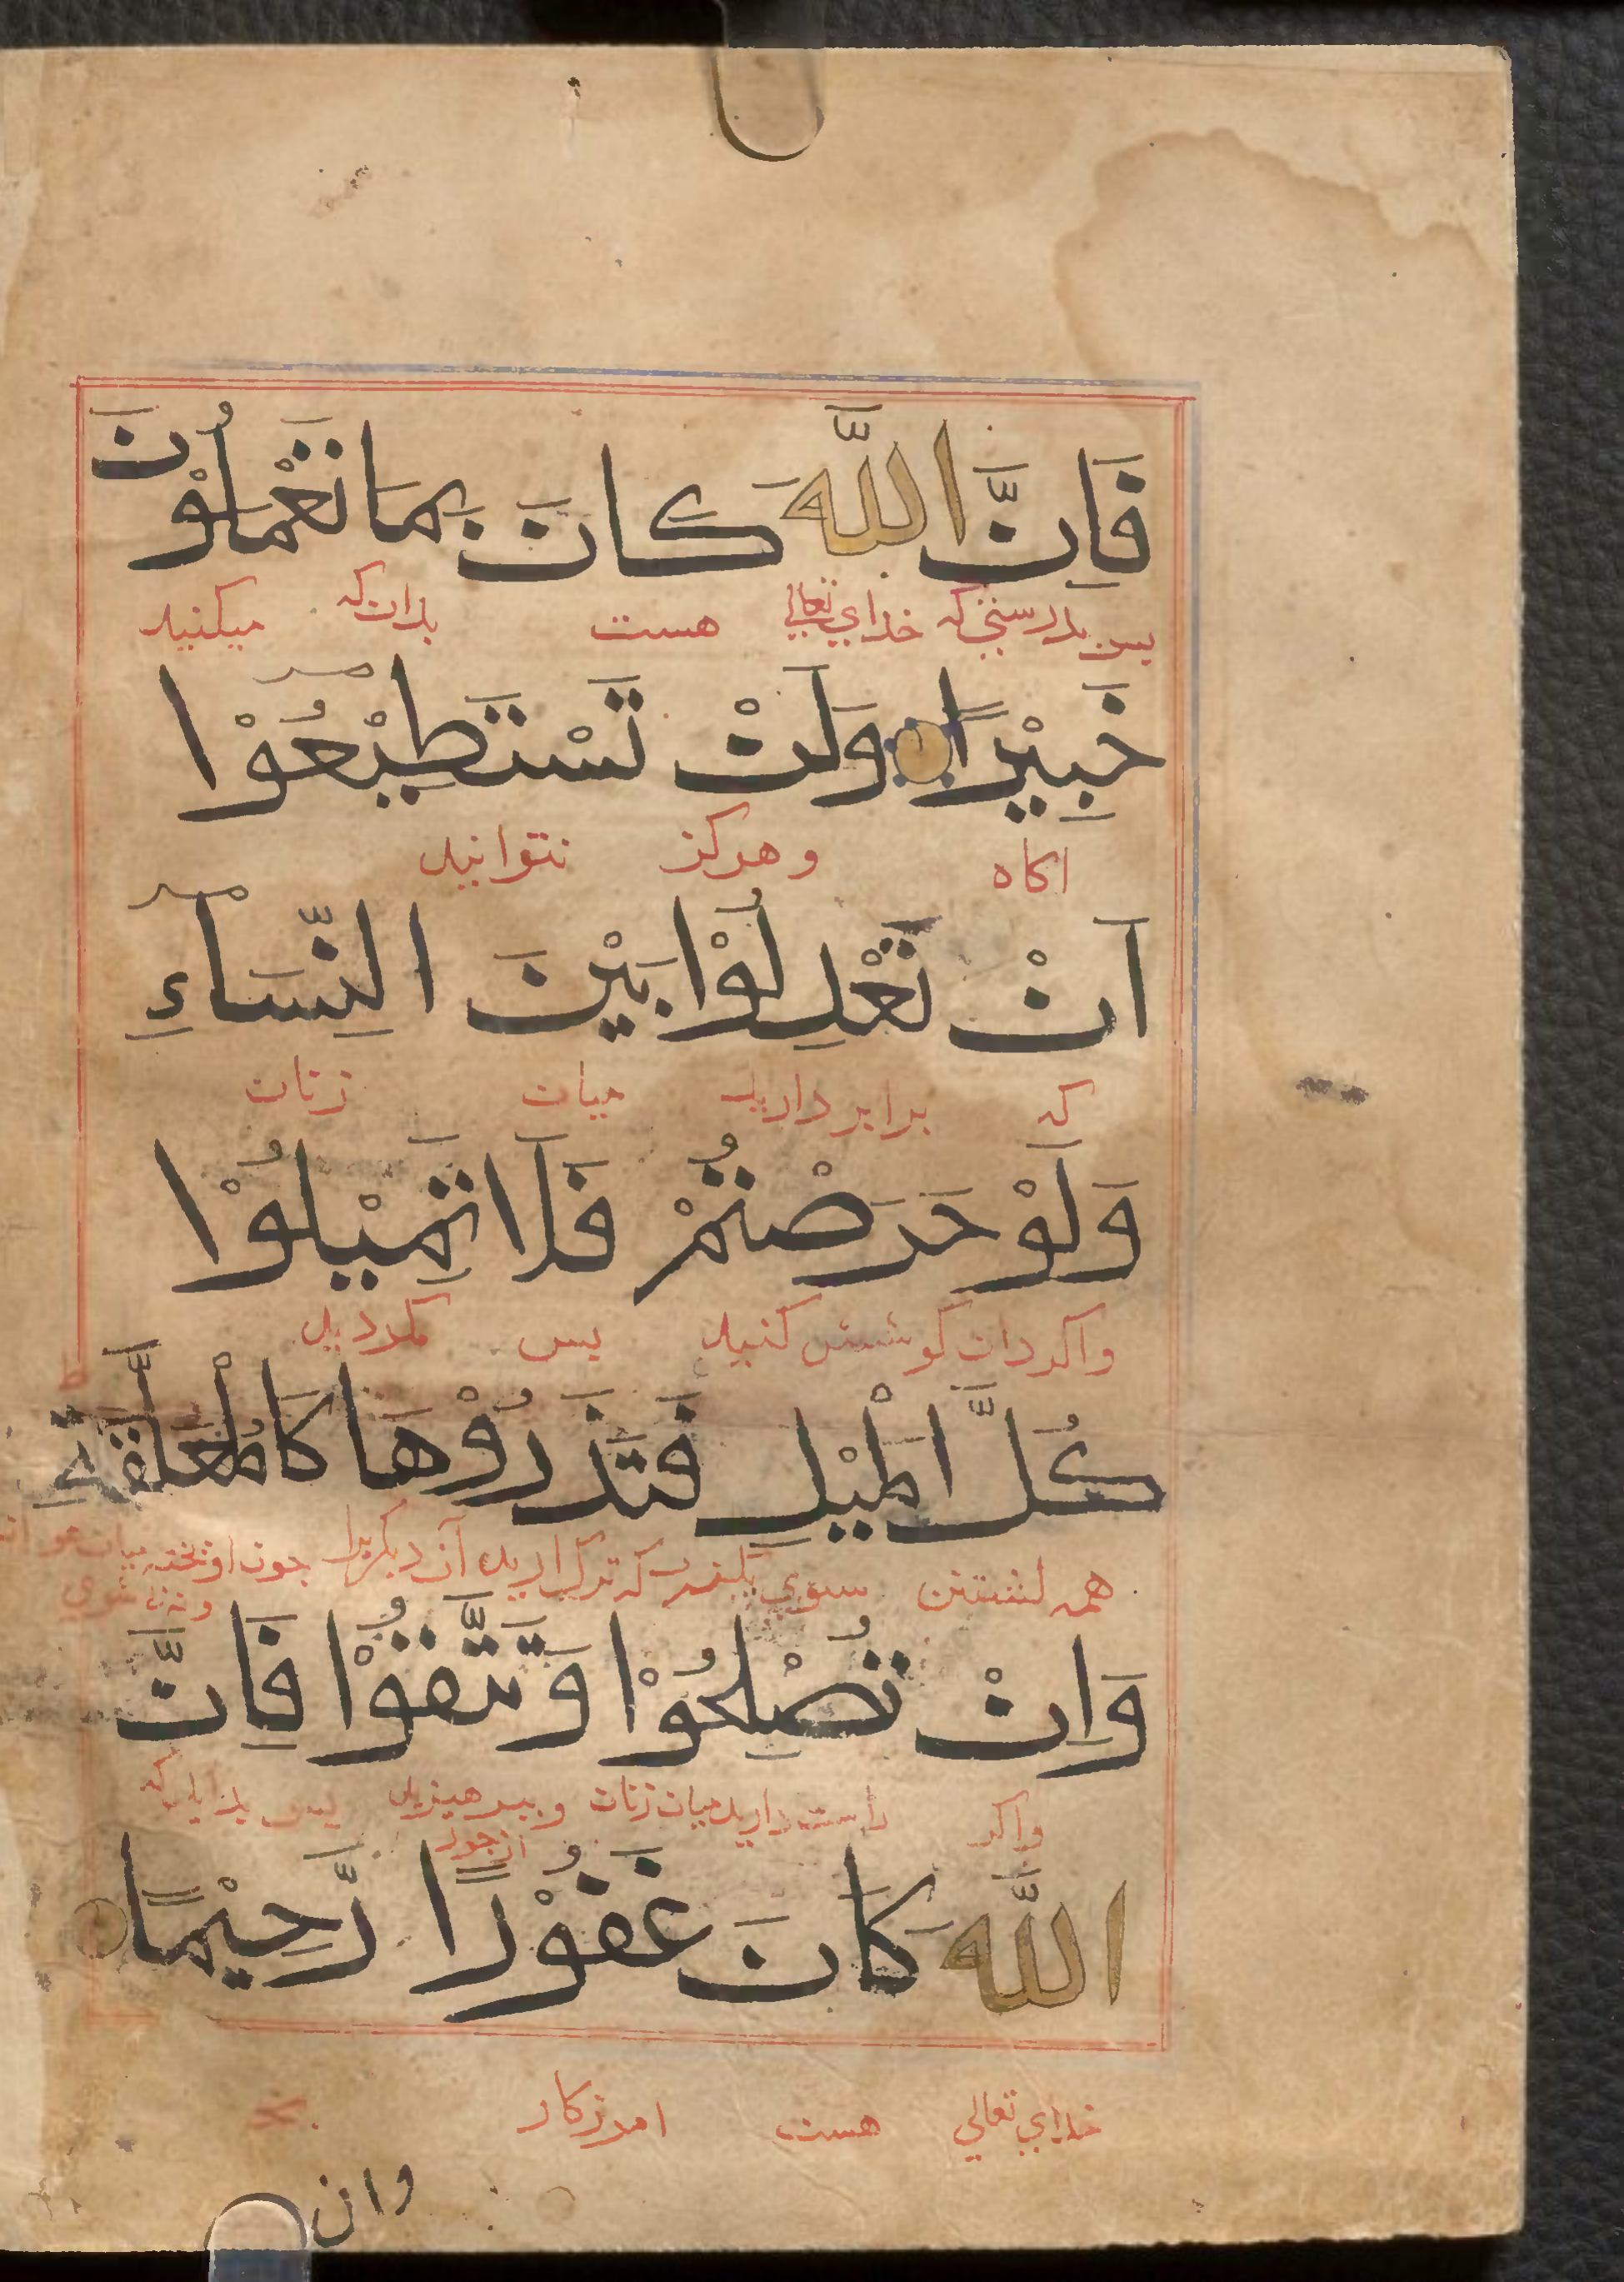 فَاِنَّ اللّٰهَ كَانَ بِمَا تَعْمَلُوْنَ
پس بدرستی که خدای تعالی هست بدان که میکنید
خَبِيْرًا وَلَنْ تَسْتَطِيْعُوْا
اکاه وهرکز نتوانید
اَنْ تَعْدِلُوْا بَيْنَ النِّسَاءِ
که برابر دارید میان زنان
وَلَوْ حَرَصْتُمْ فَلَا تَمِيْلُوْا
واکر دان کوشش کنید پس مکردید
كُلَّ الْمَيْلِ فَتَذَرُوْهَا كَالْمُعَلَّقَةِ
همه کشتن سوی که ترک ارید آن دیکر را چون اویخته میان
وَاِنْ تُصْلِحُوْا وَتَتَّقُوْا فَاِنَّ
واکر راست دارید میان زنان وبپرهیزید از جور پس بدانید که
اللّٰهَ كَانَ غَفُوْرًا رَّحِيْمًا
خدای تعالی هست امرزکار
وان